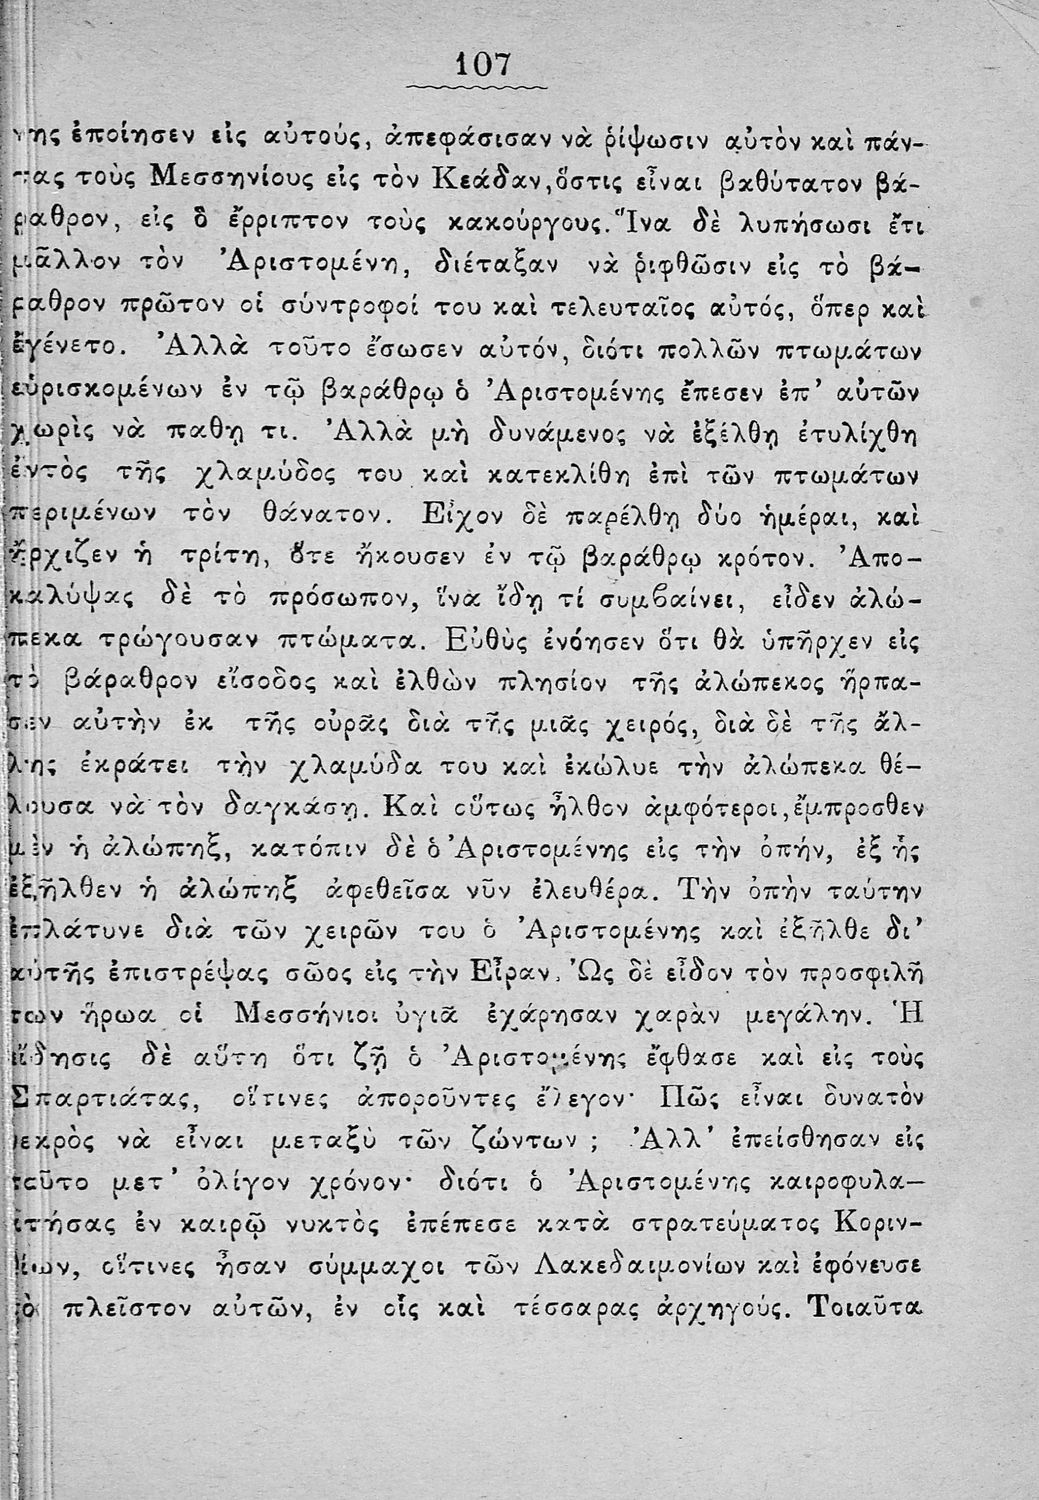 107
νης ἐποίησεν εἰς αὐτούς, ἀπεφάσισαν νὰ ῥίψωσιν αὐτὸν καὶ πάν-
τας τοὺς Μεσσηνίους εἰς τὸν Κεάδαν, ὅστις εἶναι βαθύτατον βά-
ραθρον, εἰς ὃ ἔρριπτον τοὺς κακούργους. Ἵνα δὲ λυπήσωσι ἔτι
μᾶλλον τὸν Ἀριστομένη, διέταξαν νὰ ῥιφθῶσιν εἰς τὸ βά-
ραθρον πρῶτον οἱ σύντροφοί του καὶ τελευταῖος αὐτός, ὅπερ καὶ
ἐγένετο. Ἀλλὰ τοῦτο ἔσωσεν αὐτόν, διότι πολλῶν πτωμάτων
εὑρισκομένων ἐν τῷ βαράθρῳ ὁ Ἀριστομένης ἔπεσεν ἐπ' αὐτῶν
χωρὶς νὰ παθῃ τι. Ἀλλὰ μὴ δυνάμενος νὰ ἐξέλθῃ ἐτυλίχθη
ἐντὸς τῆς χλαμύδος του καὶ κατεκλίθη ἐπὶ τῶν πτωμάτων
περιμένων τὸν θάνατον. Εἶχον δὲ παρέλθῃ δύο ἡμέραι, καὶ
ἤρχιζεν ἡ τρίτη, ὅτε ἤκουσεν ἐν τῷ βαράθρῳ κρότον. Ἀπο-
καλύψας δὲ τὸ πρόσωπον, ἵνα ἴδῃ τί συμβαίνει, εἶδεν ἀλώ-
πεκα τρώγουσαν πτώματα. Εὐθὺς ἐνόησεν ὅτι θὰ ὑπῆρχεν εἰς
τὸ βάραθρον εἴσοδος καὶ ἐλθὼν πλησίον τῆς ἀλώπεκος ἥρπα-
σεν αὐτὴν ἐκ τῆς οὐρᾶς διὰ τῆς μιᾶς χειρός, διὰ δὲ τῆς ἄλ-
λης ἐκράτει τὴν χλαμύδα του καὶ ἐκώλυε τὴν ἀλώπεκα θέ-
λουσα νὰ τὸν δαγκάσῃ. Καὶ οὕτως ἦλθον ἀμφότεροι, ἔμπροσθεν
μὲν ἡ ἀλώπηξ, κατόπιν δὲ ὁ Ἀριστομένης εἰς τὴν ὀπήν, ἐξ ἧς
ἐξῆλθεν ἡ ἀλώπηξ ἀφεθεῖσα νῦν ἐλευθέρα. Τὴν ὀπὴν ταύτην
ἐπλάτυνε διὰ τῶν χειρῶν του ὁ Ἀριστομένης καὶ ἐξῆλθε δι'
αὐτῆς ἐπιστρέψας σῶος εἰς τὴν Εἶραν. Ὡς δὲ εἶδον τὸν προσφιλῆ
των ἥρωα οἱ Μεσσήνιοι ὑγιᾶ ἐχάρησαν χαρὰν μεγάλην. Ἡ
εἴδησις δὲ αὕτη ὅτι ζῇ ὁ Ἀριστομένης ἔφθασε καὶ εἰς τοὺς
Σπαρτιάτας, οἵτινες ἀποροῦντες ἔλεγον· Πῶς εἶναι δυνατὸν
νεκρὸς νὰ εἶναι μεταξὺ τῶν ζώντων ; Ἀλλ' ἐπείσθησαν εἰς
τοῦτο μετ' ὀλίγον χρόνον· διότι ὁ Ἀριστομένης καιροφυλα-
κτήσας ἐν καιρῷ νυκτὸς ἐπέπεσε κατὰ στρατεύματος Κοριν-
θίων, οἵτινες ἦσαν σύμμαχοι τῶν Λακεδαιμονίων καὶ ἐφόνευσε
τὸ πλεῖστον αὐτῶν, ἐν οἷς καὶ τέσσαρας ἀρχηγούς. Τοιαῦτα